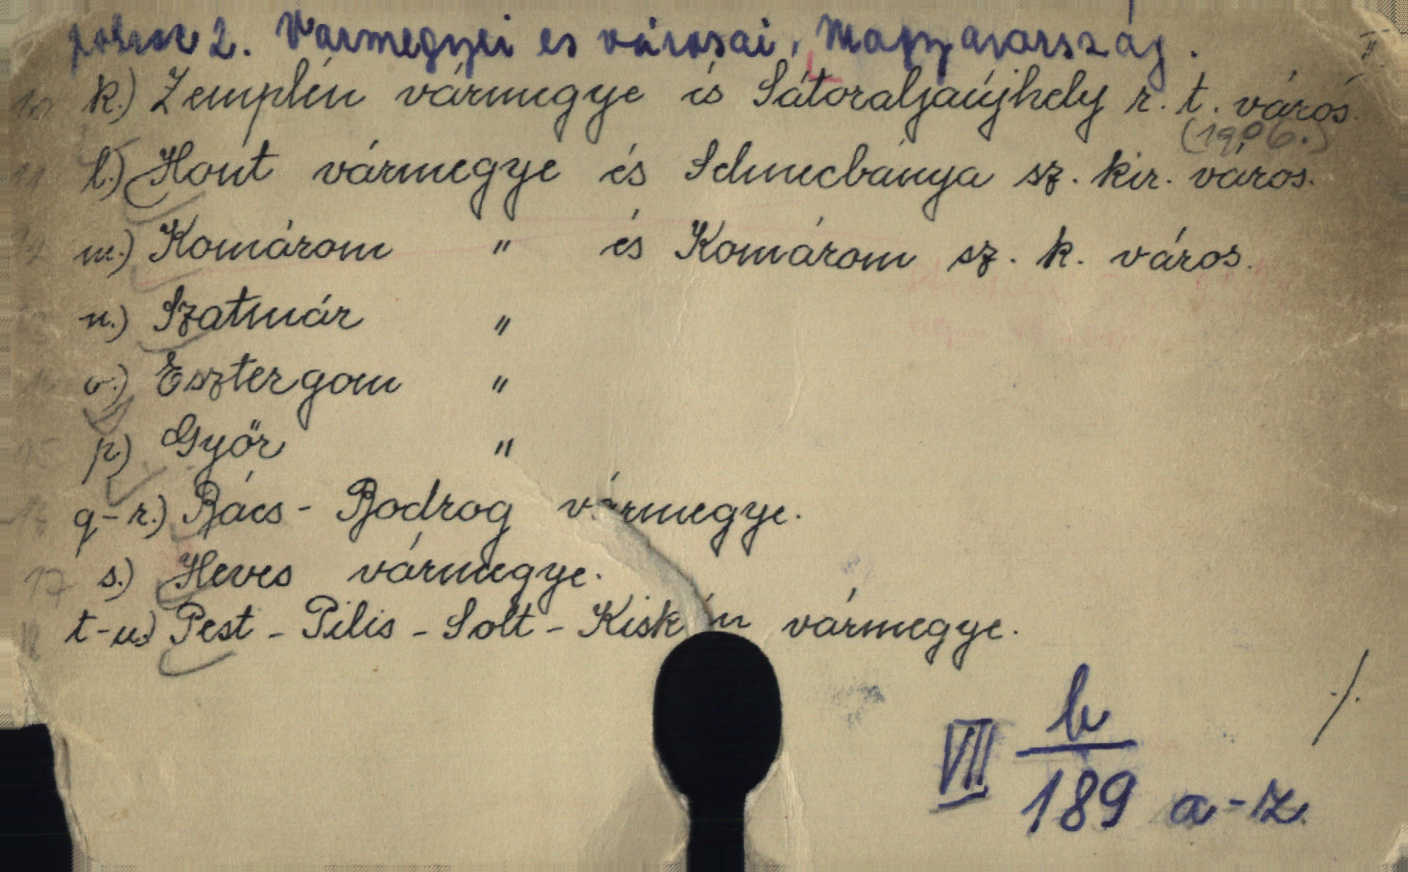 2. Vármegyéi és városai, Magyarország.
II.
10 k.) Zemplén vármegye és Sátoraljaújhely r. t. város.
(1906.)
11 l.) Hont vármegye és Selmecbánya sz. kir. város.
12 m.) Komárom " és Komárom sz. k. város.
n.) Szatmár "
o.) Esztergom "
15 p.) Győr "
16 q-r.) Bács-Bodrog vármegye.
17 s.) Heves vármegye.
18 t-u.) Pest-Pilis-Solt-Kiskún vármegye.
./.
VII b
189 a-z.